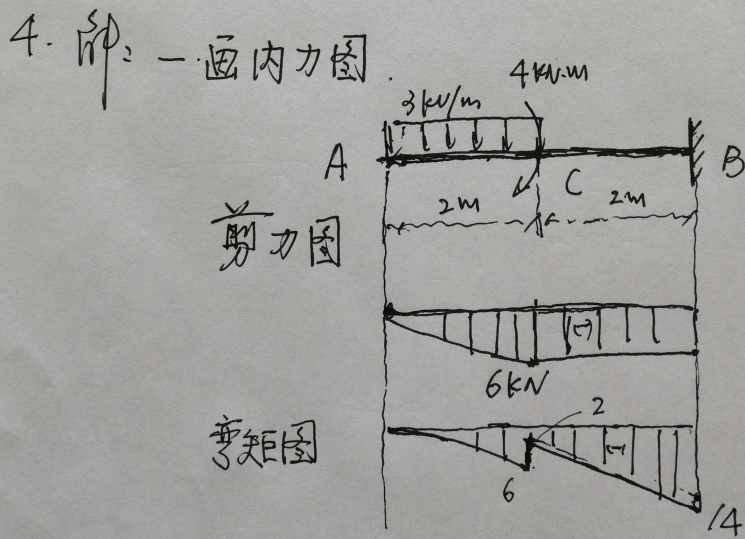 4. 解: 一. 画内力图.
4KN·m
3KN/m
A
B
C
2m
2m
剪力图
(-)
6KN
弯矩图
2
(-)
6
14